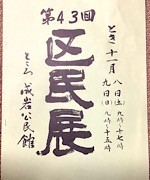 第43回
区民展
とき 十一月
八日(土) 九時〜十七時
九日(日) 九時〜十五時
ところ 成岩公民館